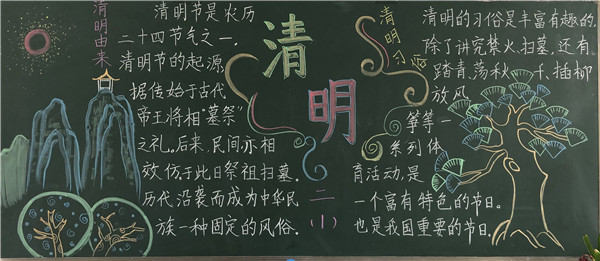 清明由来
清明节是农历
二十四节气之一.
清明节的起源,
据传始于古代
帝王将相“墓祭”
之礼。后来,民间亦相
效仿于此日祭祖扫墓.
历代沿袭而成为中华民
族一种固定的风俗.
清
明
二(1)
清明习俗
清明的习俗是丰富有趣的,
除了讲究禁火、扫墓,还有
踏青、荡秋千、插柳
放风
筝等一
系列体
育活动,是
一个富有特色的节日。
也是我国重要的节日.